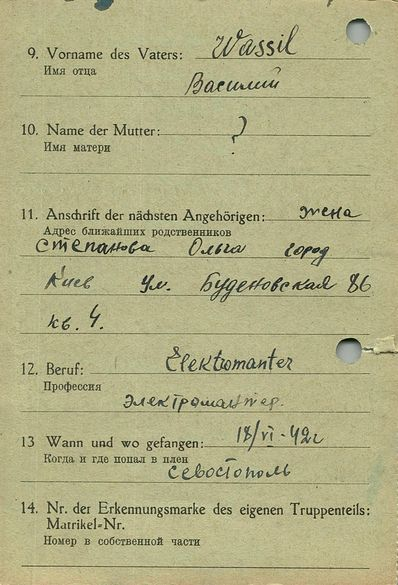 9. Vorname des Vaters: Wassil
Имя отца
Василий
10. Name der Mutter: ?
Имя матери
11. Anschrift der nächsten Angehörigen: жена
Адрес ближайших родственников
Степанова Ольга город
Киев ул. Буденовская 86
кв. 4.
12. Beruf: Elektromanter
Профессия
электромантер.
13 Wann und wo gefangen: 18/VI-42г
Когда и где попал в плен
Севостополь
14. Nr. der Erkennungsmarke des eigenen Truppenteils:
Matrikel-Nr.
Номер в собственной части